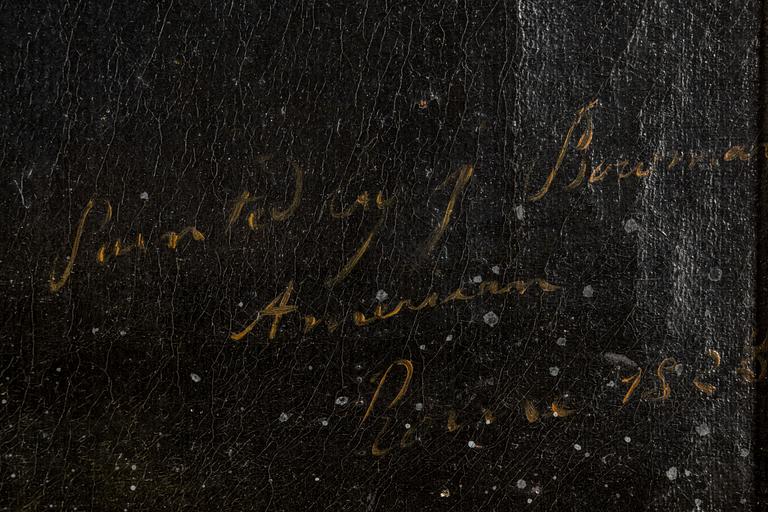 Painted by J Bowman
American
Rome 182